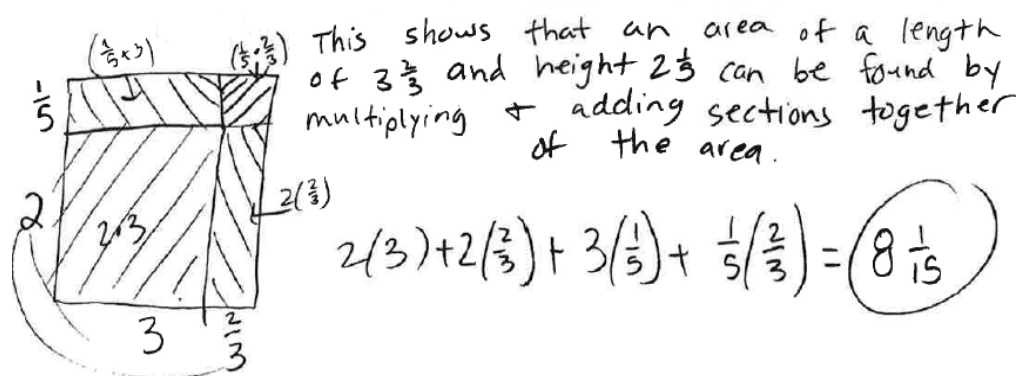 (1/5 × 3) (1/5 · 2/3)
This shows that an area of a length
of 3 2/3 and height 2 1/5 can be found by
multiplying + adding sections together
of the area.
1/5
2
2·3
2(2/3)
3 2/3
2(3)+2(2/3)+3(1/5)+1/5(2/3)=8 1/15